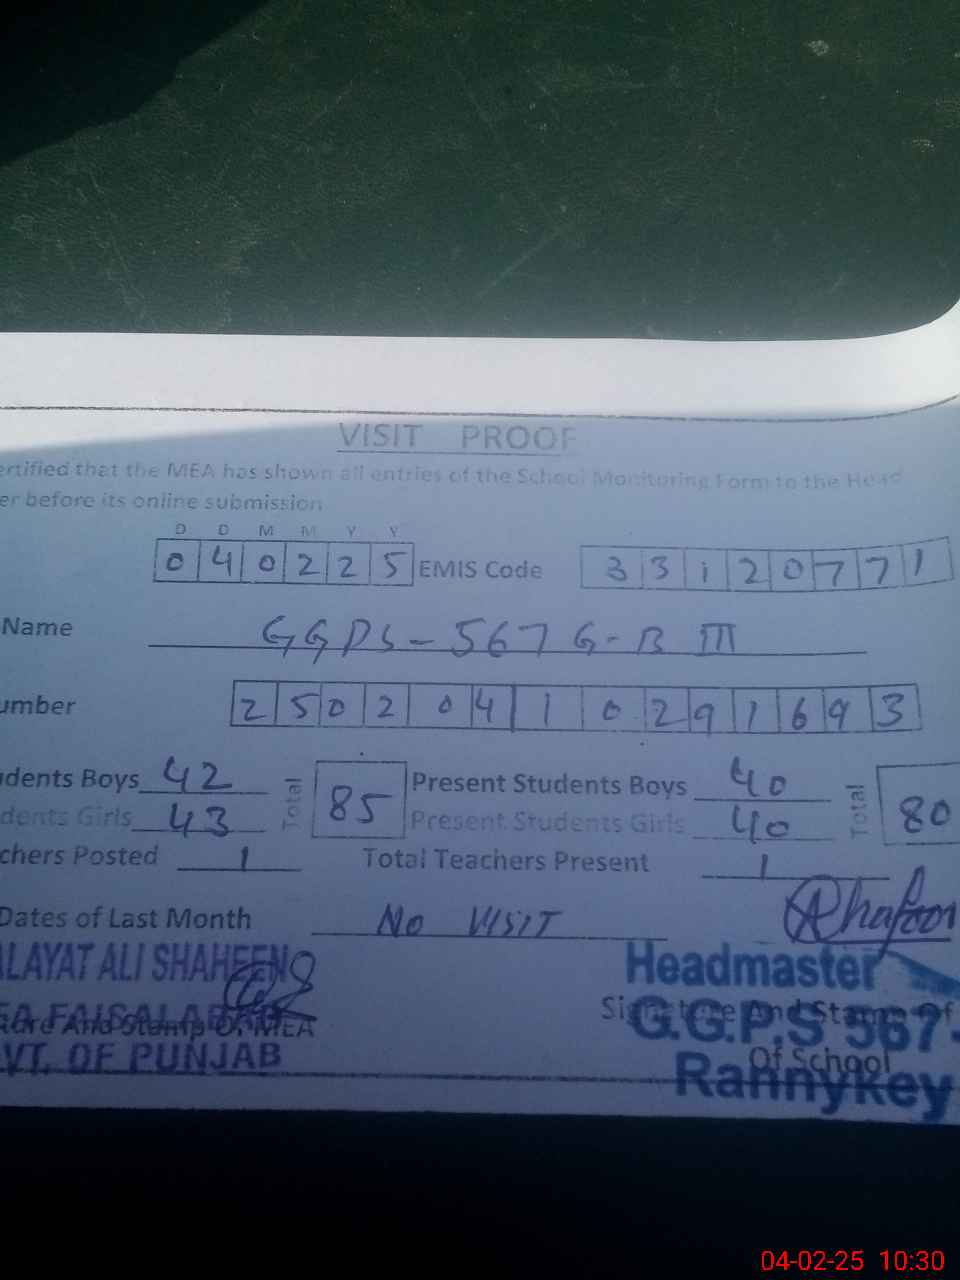 VISIT PROOF
ertified that the MEA has shown all entries of the School Monitoring Form to the Head
er before its online submission
D D M M Y Y
0 4 0 2 2 5 EMIS Code 3 3 1 2 0 7 7 1
Name GGPS-567 G-B III
umber 2 5 0 2 0 4 1 0 2 9 1 6 9 3
dents Boys 42 Total 85 Present Students Boys 40 Total 80
dents Girls 43 Present Students Girls 40
chers Posted 1 Total Teachers Present 1
Dates of Last Month No VISIT
LAYAT ALI SHAHEEN
EA FAISALABAD
ture And Stamp Of MEA
VT. OF PUNJAB
Headmaster
Signature And Stamp Of
G.G.P.S 567-
Of School
Rannykey
04-02-25 10:30